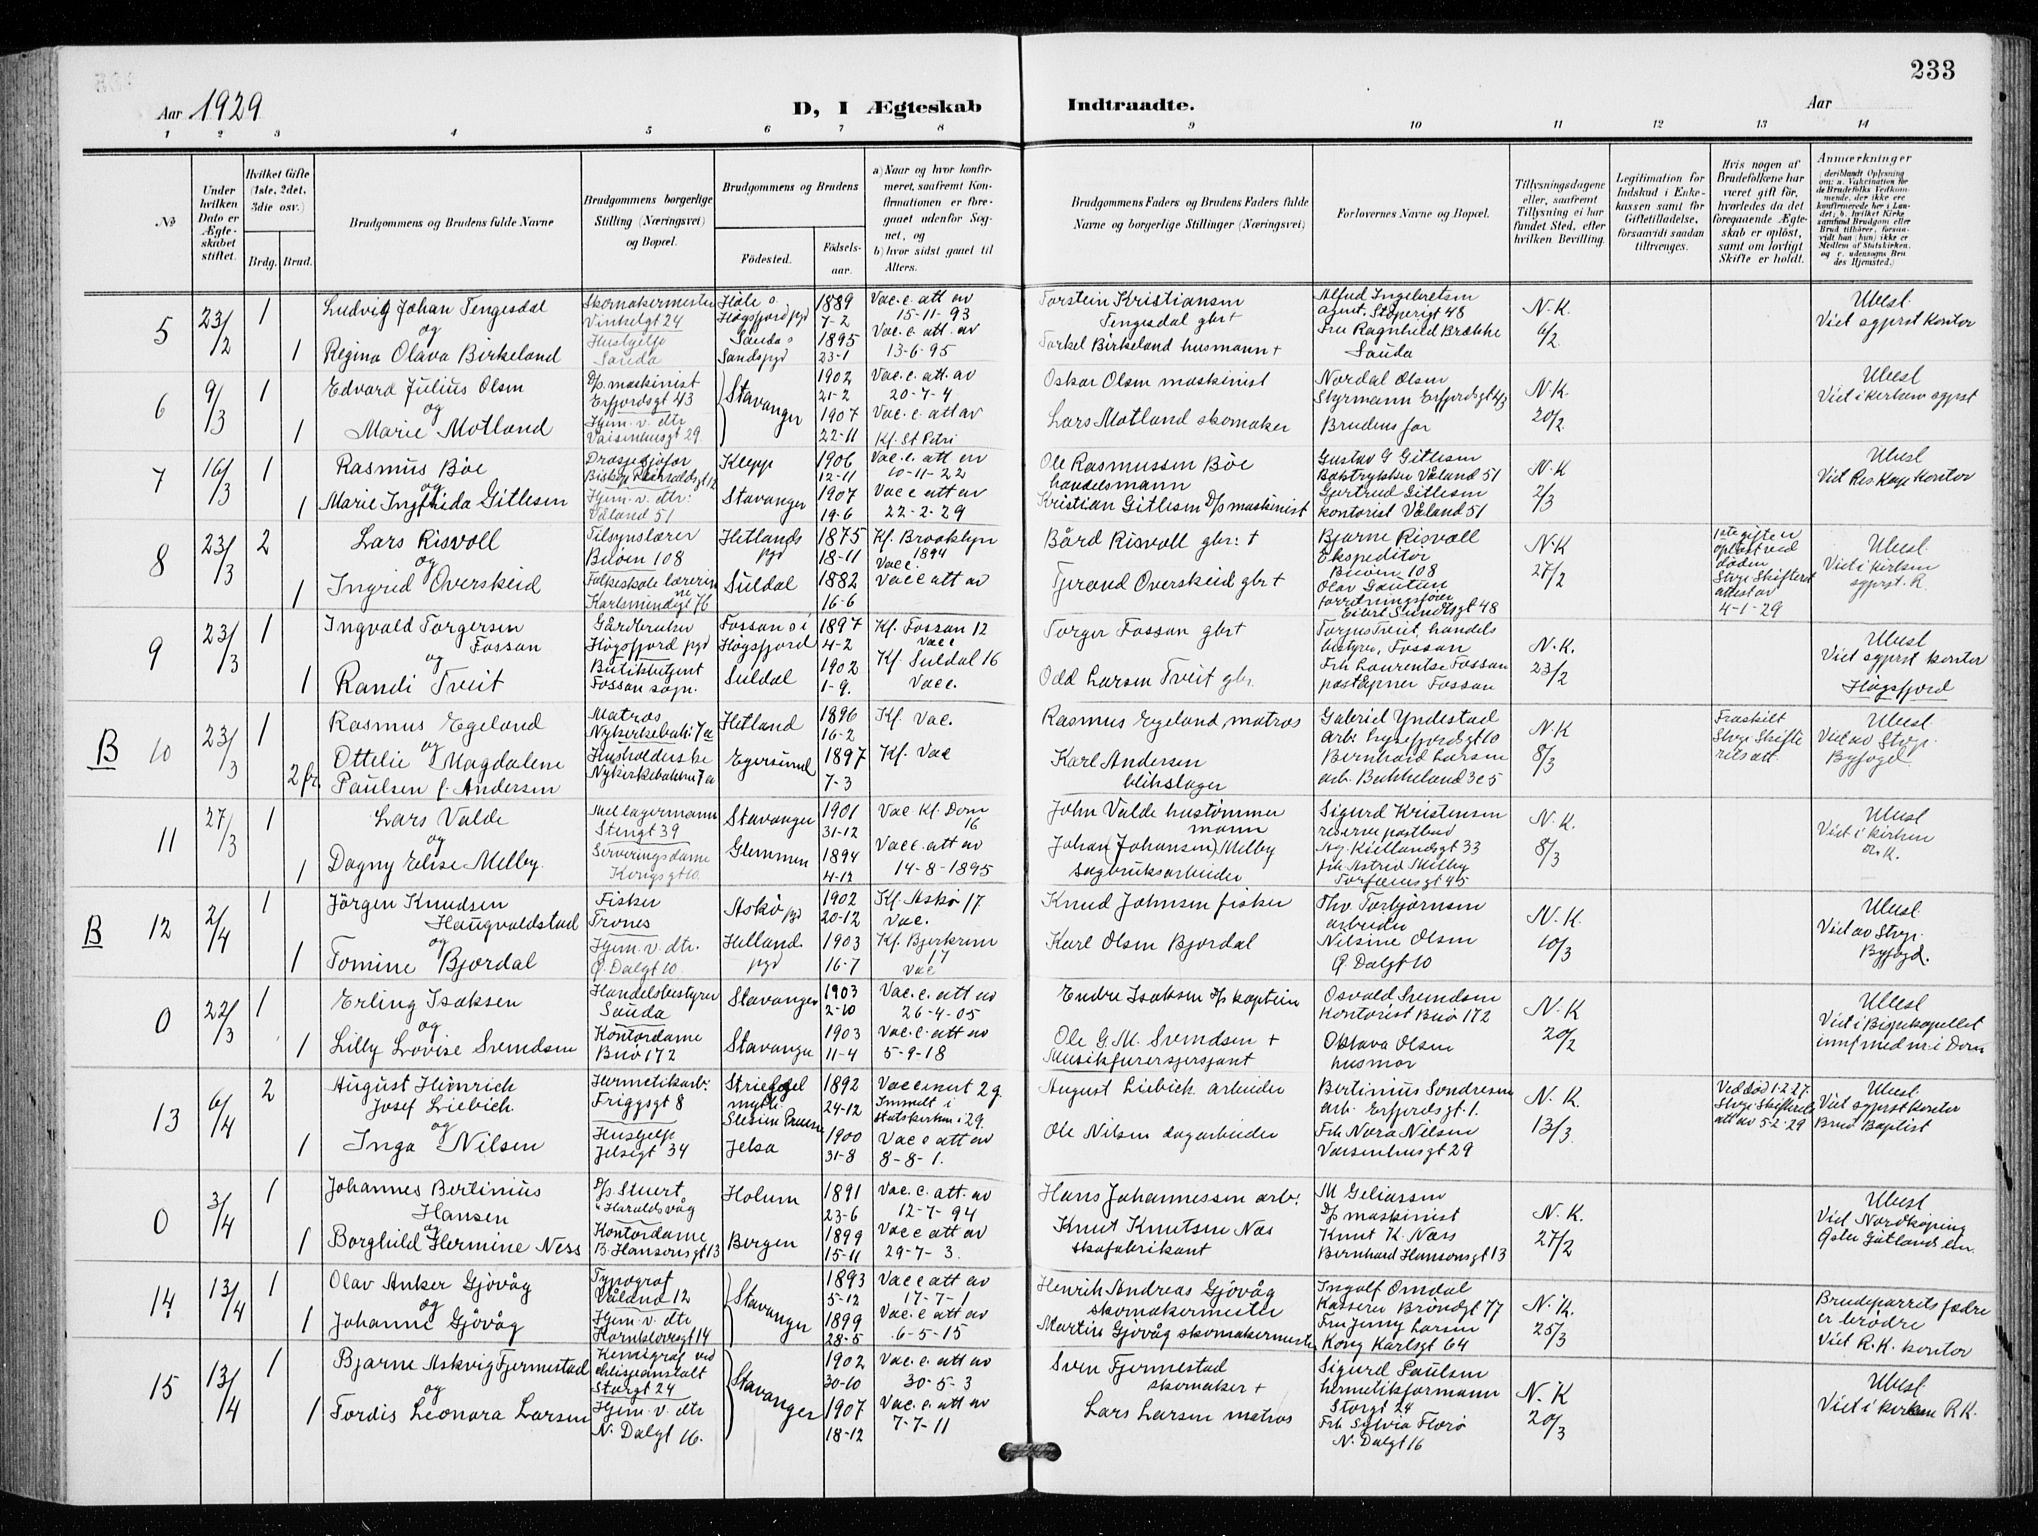 233
Aar 1929
D, I Ægteskab
Indtraadte.
Aar
1 2 3 4 5 6 7 8 9 10 11 12 13 14
No
Under hvilken Dato er Ægteskabet stiftet.
Hvilket Gifte (1ste, 2det, 3die osv.)
Brdg. Brud.
Brudgommens og Brudens fulde Navne
Brudgommens borgerlige Stilling (Næringsvei) og Bopæl.
Brudgommens og Brudens
Födested.
Födselsaar.
a) Naar og hvor konfirmeret, saafremt Konfirmationen er foregaaet udenfor Sognet, og
b) hvor sidst gaaet til Alters.
Brudgommens Faders og Brudens Faders fulde Navne og borgerlige Stillinger (Næringsvei)
Forlovernes Navne og Bopæl.
Tillysningsdagene eller, saafremt Tillysning ei har fundet Sted, efter hvilken Bevilling.
Legitimation for Indskud i Enkekassen samt for Giftetilladelse, forsaavidt saadan tiltrænges.
Hvis nogen af Brudefolkene har været gift för, hvorledes da det foregaaende Ægteskab er oplöst, samt om lovligt Skifte er holdt.
Anmærkninger
5 23/2 1 Ludvig Johan Tengesdal
og
1 Regina Olava Birkeland
Skomakermester
Vinkelgt 24
Sauda
Høgsfjord pgd
1889
7-2
1895
23-1
Vac. e. att av
15-11-93
Vac. e. att. av
13-6-95
Torstein Kristiansen
Tengesdal gbr +
Torkel Birkeland husmann +
Fru Ragnhild Brække
Sauda
N.K.
6/2
Ubesl.
Viet sgprst kontor
6 9/3 1 Edvard Julius Olsen
og
1 Marie Motland
D/s maskinist
Erfjordsgt 43
Hjem. v. dtr
Vaisenhusgt 29
Stavanger
1902
21-2
1907
22-11
Vac. e. att. av
20-7-4
Vac. e. att av
Kf. St Petri
Oskar Olsen maskinist
Lars Motland skomaker
Nordal Olsen
Styrmann Erfjordsgt 43
Brudens far
N.K.
20/2
Ubesl
Viet i kirken sgprst
7 16/3 1 Rasmus Bøe
og
1 Marie Ingfrida Gitlesen
Hjem. v. dtr.
Våland 51
Klepp
Stavanger
1906
12-11
1907
19-6
Vac. e. att av
10-11-22
Vac e att av
22-2-29
Ole Rasmussen Bøe
handelsmann
Kristian Gitlesen D/s maskinist
Gustav G Gitlesen
Boktrykker Våland 51
Gjertrud Gitlesen
kontorist Våland 51
N.K
2/3
Ubesl
Viet Res Kap Kontor
8 23/3 2 Lars Risvoll
og
1 Ingrid Overskeid
Tilsynslærer
Buøen 108
Folkeskole lærerinne
Karlsminnegt 76
Hetlands pgd
Suldal
1875
18-11
1882
16-6
Kf. Brooklyn
1894
Vac e.
Vac e att av
Bård Risvoll gbr: +
Tjerand Overskeid gbr +
Bjarne Risvoll
Ekspeditør
Buøen 108
Eilert Sundtsgt 48
N.K
27/2
1ste gifte er
opløst ved
døden
Stvgr Skifteret
attest av
4-1-29
Ubesl.
Viet i kirken
sgprst. R.
9 23/3 1 Ingvald Torgersen
Fossan
og
1 Randi Tveit
Gårdbruker
Høgsfjord pgd
Butikkbetjent
Fossan sogn.
Fossan s i
Høgsfjord
Suldal
1897
4-2
1902
1-9.
Kf. Fossan 12
Vac e
Kf. Suldal 16
Vac e.
Torger Fossan gbr +
Odd Larsen Tveit gbr.
Torjus Tveit, handels
bestyrer, Fossan
Frk Laurentse Fossan
poståpner Fossan
N.K.
23/2
Ubesl
Viet sgprst kontor
Høgsfjord
B 10 23/3 1 Rasmus Egeland
og
2 fr. Ottelie Magdalene
Paulsen f. Andersen
Matros
Nykirkebakk. 7a
Husholderske
Nykirkebakken 7a
Hetland
Egersund
1896
16-2
1897
7-3
Kf. Vac.
Kf. Vac
Rasmus Egeland, matros
Karl Andersen
blikslager
Gabriel Yndestad
arb. Lysefjordsgt 10
Bernhard Larsen
arb. Bakkeland 3 c 5
N.K
8/3
Fraskilt
Stvgr. Skifte
rets att.
Ubesl
Viet av Stvgr.
Byfogd
11 27/3 1 Lars Valde
og
1 Dagny Elise Melby
Mellagermann
Stengt 39
Serveringsdame
Kongsgt 10.
Stavanger
Glemmen
1901
31-12
1894
4-12
Vac Kf. Dom
16
Vac e. att av
14-8-1895
John Valde hustømmer
mann
Johan (Johansen) Melby
Sagbruksarbeider
Sigurd Kristensen
reserve postbud
Ag. Kiellandsgt 33
frk Astrid Melby
Torfæusgt 45
N.K.
8/3
Ubesl
Viet i kirken
B 12 2/4 1 Jörgen Knudsen
Haugvaldstad
og
1 Tomine Bjordal
Fisker
Hjem. v. dtr.
Ø. Dalgt 10
Askø pgd
Helland
pgd
1902
20-12
1903
16-7
Kf. Askø 17
Vac.
Kf. Bjerkreim
17
Vac
Knud Johnsen fisker
Karl Olsen Bjordal
Thv. Torbjörnsen
arbeider
Nilsine Olsen
Ø. Dalgt 10
N.K.
10/3
Ubesl.
Viet av Stvgr.
Byfogd.
0 22/3 1 Erling Isaksen
og
1 Lilly Lovise Svendsen
Handelsbestyrer
Sauda
Kontordame
Buø 172
Stavanger
Stavanger
1903
2-10
1903
11-4
Vac. e. att av
26-4-05
Vac. e. att av
5-9-18
Endre Isaksen D/s kaptein
Ole G. M. Svendsen +
Musikkfurersjersjant
Osvald Svendsen
Kontorist Buø 172
Oktava Olsen
husmor
N.K
20/2
Ubesl
Viet i Bispekapellet
innf med nr i Dom
13 6/4 2 August Heinrich
Josef Liebich
og
1 Inga Nilsen
Hermetikarb.
Friggsgt 8
Hushjelp
Jelsagt 34
Jelsa
1892
24-12
1900
31-8
Vaccinert 2 g.
Innmeldt i
Statskirken i 29.
Vac e att av
8-8-1.
August Liebich arbeider
Ole Nilsen dagarbeider
Bertinius Sondresen
arb. Erfjordsgt. 1.
Frk Nora Nilsen
Vaisenhusgt 29
N.K.
13/3
Ved død 1-2-27.
Stvgr Skifterets
att av 5-2-29
Ubesl.
Viet sgprst kontor
Brud Baptist
0 3/4 1 Johannes Bertinius
Hansen
og
1 Borghild Hermine Ness
D/s Stuert
"Haraldsvåg"
Kontordame
B. Hansensgt 13
Holum
Bergen
1891
23-6
1899
15-11
Vac. e. att. av
12-7-94
Vac e att av
29-7-3.
Hans Johannessen arb.
Knut Knutsen Næs
skofabrikant
M Geliassen
D/s maskinist
Knut K. Næs
Bernhard Hansensgt 13
N.K.
27/2
Ubesl
Viet Nordkøping
Øster Gøtlands len
14 13/4 1 Olav Anker Gjøvåg
og
1 Johanne Gjøvåg
Typograf
Våland 12
Hjem. v. dtr
Hornklovesgt 14
Stavanger
1893
5-12
1899
28-5
Vac e att av
17-7-1
Vac. e att av
6-5-15
Henrik Andreas Gjøvåg
skomakermester
Martin Gjøvåg skomakermester
Ingolf Omdal
Kasserer Brøndgt 77
Fru Jenny Larsen
Kong Karlsgt 64
N.K.
25/3
Brudeparrets fædre
er brødre
Viet R.K. kontor
15 13/4 1 Bjarne Askvig Fjermestad
og
1 Tordis Leonora Larsen
Kemigraf ved
clisjeanstalt
Storgt 24
Hjem. v. dtr
N. Dalgt 16.
Stavanger
1902
30-10
1907
18-12
Vac. e. att av
30-5-3
Vac. e. att av
7-7-11
Sven Fjermestad
skomaker +
Lars Larsen matros
Sigurd Paulsen
hermetikkformann
Storgt 24
Frk Sylvia Florø
N. Dalgt 16
N.K
20/3
Ubesl
Viet i kirken R.K.